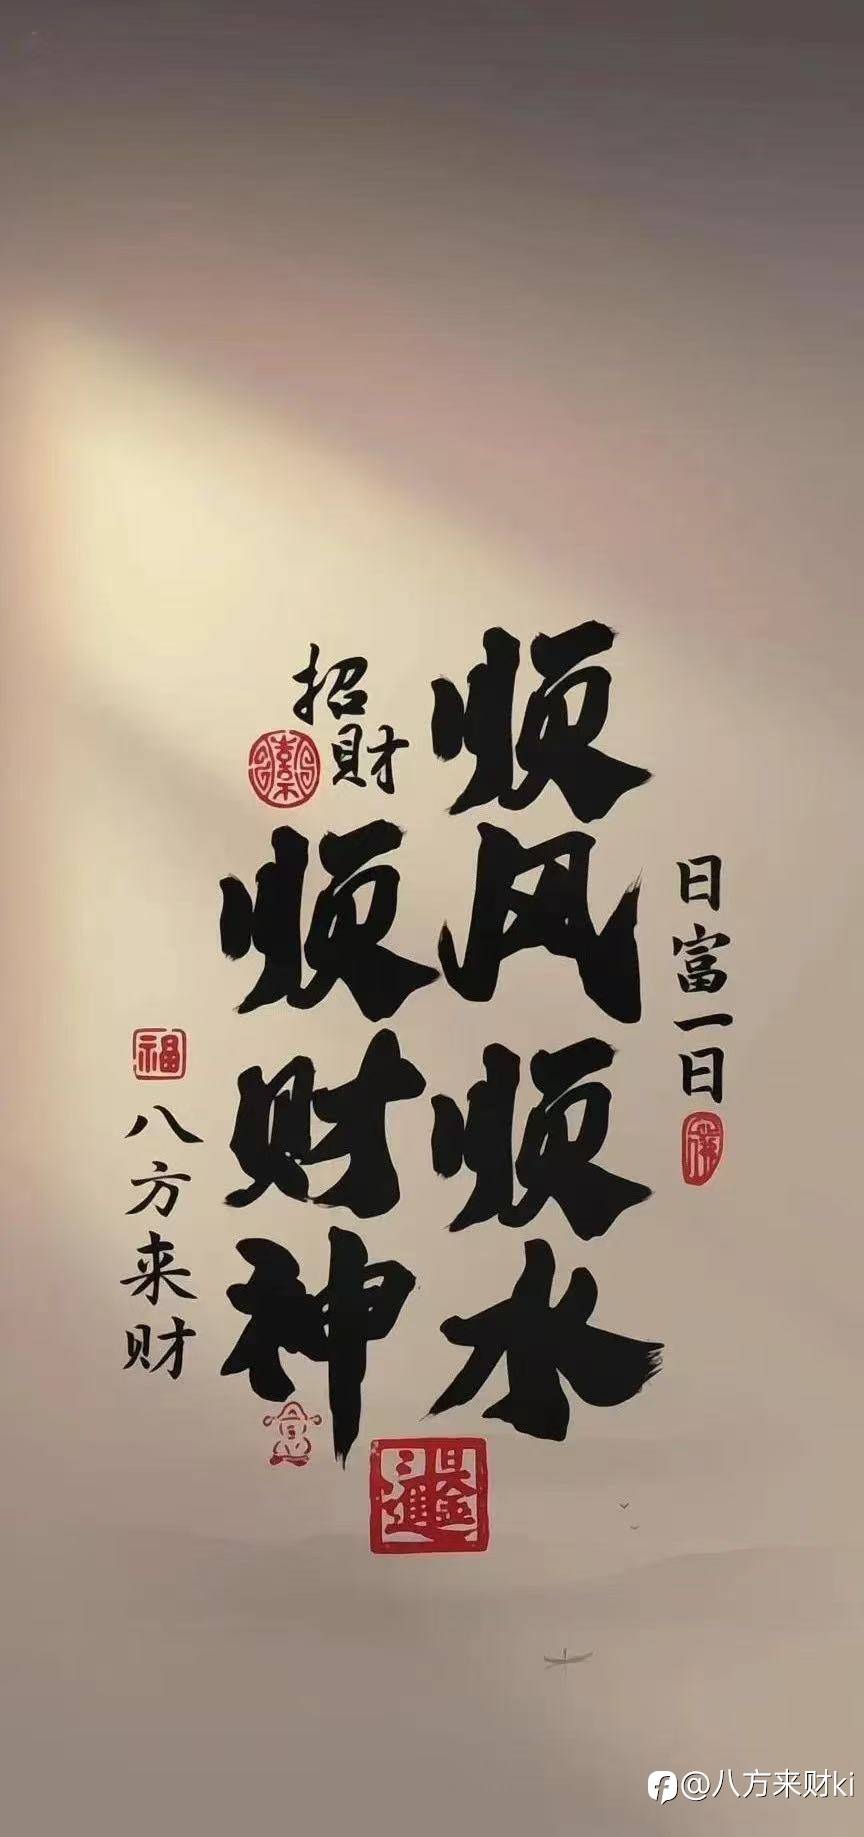 日富一日
顺风顺水
招財
顺财神
福
八方来财
日進三金
@八方来财ki